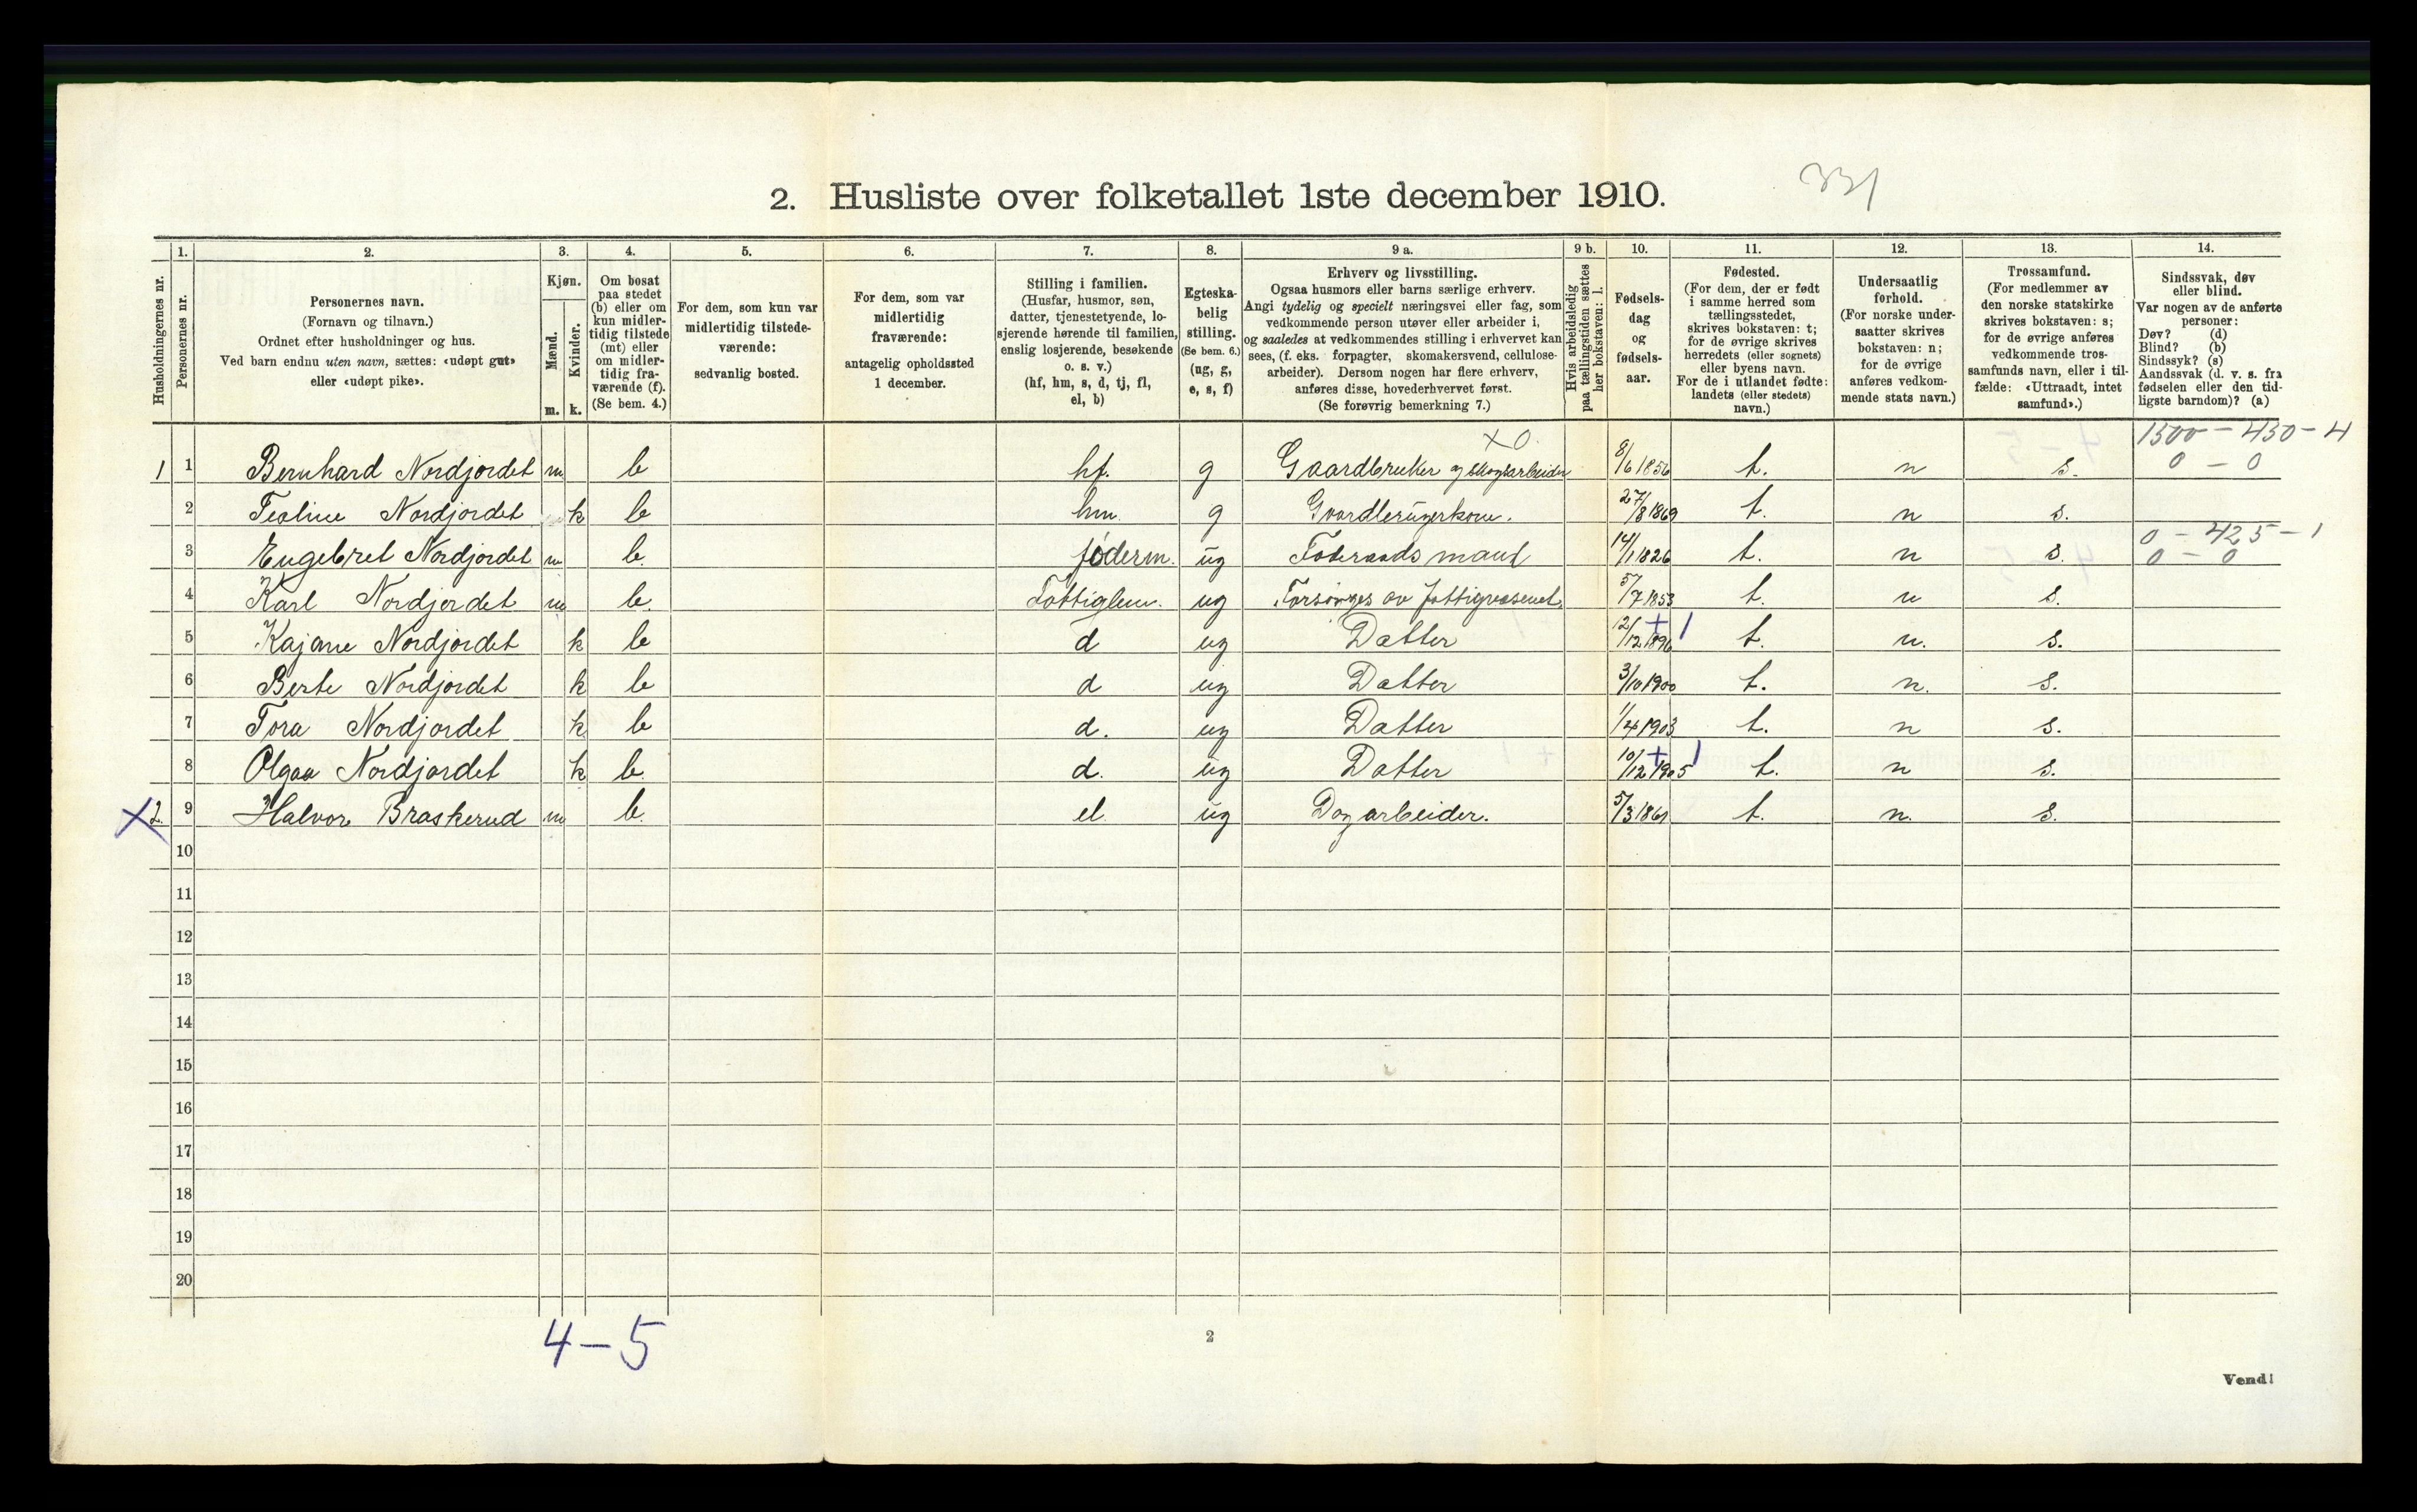 331
2. Husliste over folketallet 1ste december 1910.
Husholdningernes nr.
1. Personernes nr.
2. Personernes navn.
(Fornavn og tilnavn.)
Ordnet efter husholdninger og hus.
Ved barn endnu uten navn, sættes: «udøpt gut»
eller «udøpt pike».
3. Kjøn.
Mænd. Kvinder.
m. k.
4. Om bosat
paa stedet
(b) eller om
kun midler-
tidig tilstede
(mt) eller
om midler-
tidig fra-
værende (f).
(Se bem. 4.)
5. For dem, som kun var
midlertidig tilstede-
værende:
sedvanlig bosted.
6. For dem, som var
midlertidig
fraværende:
antagelig opholdssted
1 december.
7. Stilling i familien.
(Husfar, husmor, søn,
datter, tjenestetyende, lo-
sjerende hørende til familien,
enslig losjerende, besøkende
o. s. v.)
(hf, hm, s, d, tj, fl,
el, b)
8. Egteska-
belig
stilling.
(Se bem. 6.)
(ug, g,
e, s, f)
9 a. Erhverv og livsstilling.
Ogsaa husmors eller barns særlige erhverv.
Angi tydelig og specielt næringsvei eller fag, som
vedkommende person utøver eller arbeider i,
og saaledes at vedkommendes stilling i erhvervet kan
sees, (f. eks. forpagter, skomakersvend, cellulose-
arbeider). Dersom nogen har flere erhverv,
anføres disse, hovederhvervet først.
(Se forøvrig bemerkning 7.)
9 b. Hvis arbeidsledig
paa tællingstiden sættes
her bokstaven: l.
10. Fødsels-
dag
og
fødsels-
aar.
11. Fødested.
(For dem, der er født
i samme herred som
tællingsstedet,
skrives bokstaven: t;
for de øvrige skrives
herredets (eller sognets)
eller byens navn.
For de i utlandet fødte:
landets (eller stedets)
navn.)
12. Undersaatlig
forhold.
(For norske under-
saatter skrives
bokstaven: n;
for de øvrige
anføres vedkom-
mende stats navn.)
13. Trossamfund.
(For medlemmer av
den norske statskirke
skrives bokstaven: s;
for de øvrige anføres
vedkommende tros-
samfunds navn, eller i til-
fælde: «Uttraadt, intet
samfund».)
14. Sindssvak, døv
eller blind.
Var nogen av de anførte
personer:
Døv? (d)
Blind? (b)
Sindssyk? (s)
Aandssvak (d. v. s. fra
fødselen eller den tid-
ligste barndom)? (a)
x 0. 1500 - 450 - 4
1 1 Bernhard Nordjordet m b hf. g Gaardbruker og skogsarbeider 8/6 1856 t. n s. 0 - 0
2 Teoline Nordjordet k b hm g Gaardbrugerkone. 27/8 1869 t. n s.
0 - 425 - 1
3 Engebret Nordjordet m b. føderm. ug Foderaadsmand 14/1 1826 t. n s. 0 - 0
4 Karl Nordjordet m b. Fattiglem. ug Forsørges av fattigvæsenet. 5/7 1853 t. n s.
5 Kajane Nordjordet k b d ug Datter 12/12 1896 + 1 t. n. s.
6 Berte Nordjordet k b d ug Datter 3/10 1900 t. n. s.
7 Tora Nordjordet k b d. ug Datter 1/4 1903 t. n s.
8 Olgaa Nordjordet k b. d. ug Datter 10/12 1905 + 1 t. n s.
X 2. 9 Halvor Braskerud m b. el ug Dagarbeider. 5/3 1861 t. n. s.
10
11
12
13
14
15
16
17
18
19
20
4 - 5
2
Vend!